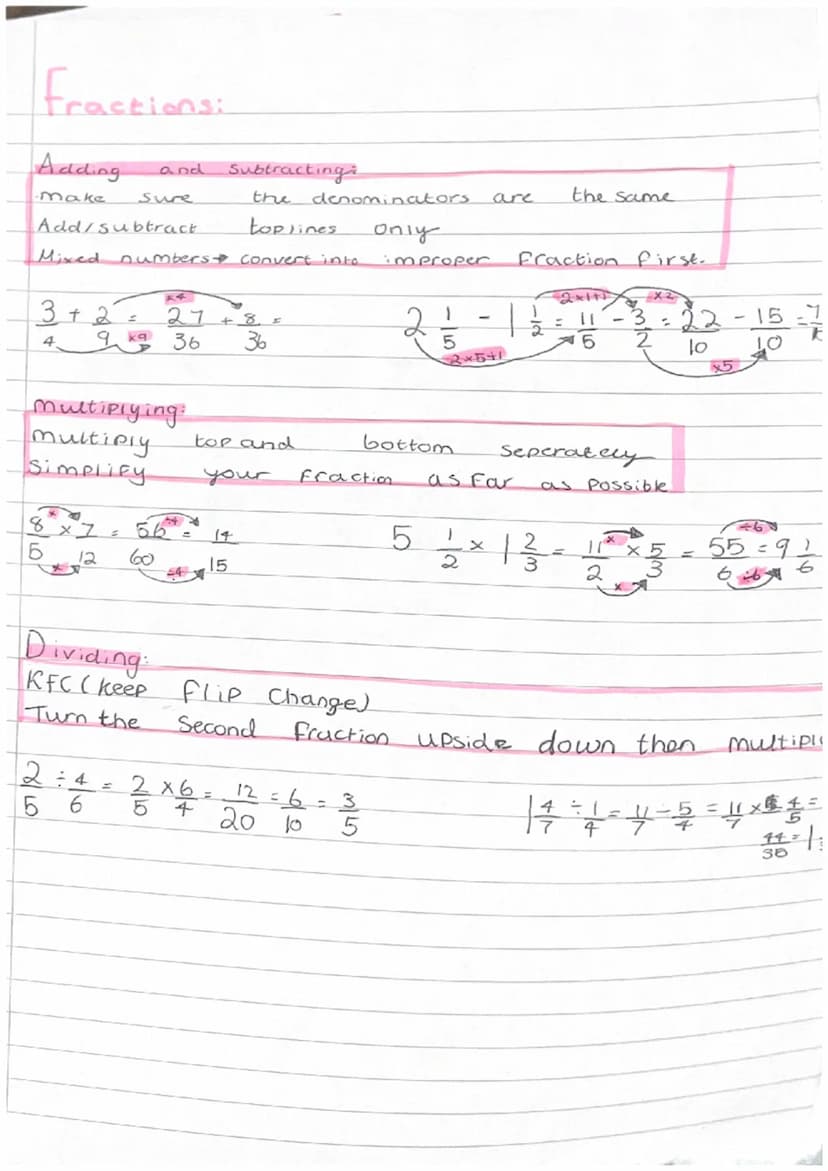 Fractions:
Adding and subtracting:
Make sure the denominators are the same
Add/subtract toplines only
Mixed numbers → convert into improper fraction first.
3/4 + 2/9 = 27/36 + 8/36 =
×4
×9
2 1/5 - 1 1/2 = 11/5 - 3/2 = 22/10 - 15/10 = 7/
2×1+1
×2
2×5+1
×5
Multiplying:
Multiply top and bottom seperately
Simplify your fraction as far as possible
8/5 × 7/12 = 56/60 = 14/15
×
÷4
×
÷4
5 1/2 × 1 2/3 = 11/2 × 5/3 = 55/6 = 9 1/6
×
÷6
×
÷6
Dividing:
KFC (Keep Flip Change)
Turn the second fraction upside down then multipl
2/5 ÷ 4/6 = 2/5 × 6/4 = 12/20 = 6/10 = 3/5
1 4/7 ÷ 1/4 = 11/7 ÷ 5/4 = 11/7 × 4/5 =
44/35 = 1